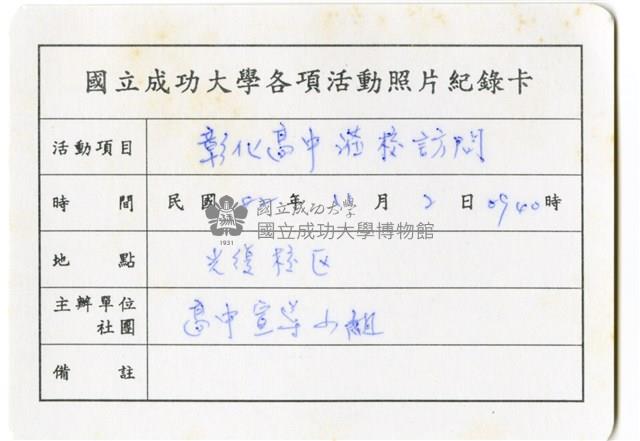 國立成功大學各項活動照片紀錄卡
活動項目 彰化高中蒞校訪問
時間 民國 年 11 月 2 日 0940 時
1931
國立成功大學
國立成功大學博物館
地點 光復校区
主辦單位
社團 高中宣導小組
備註